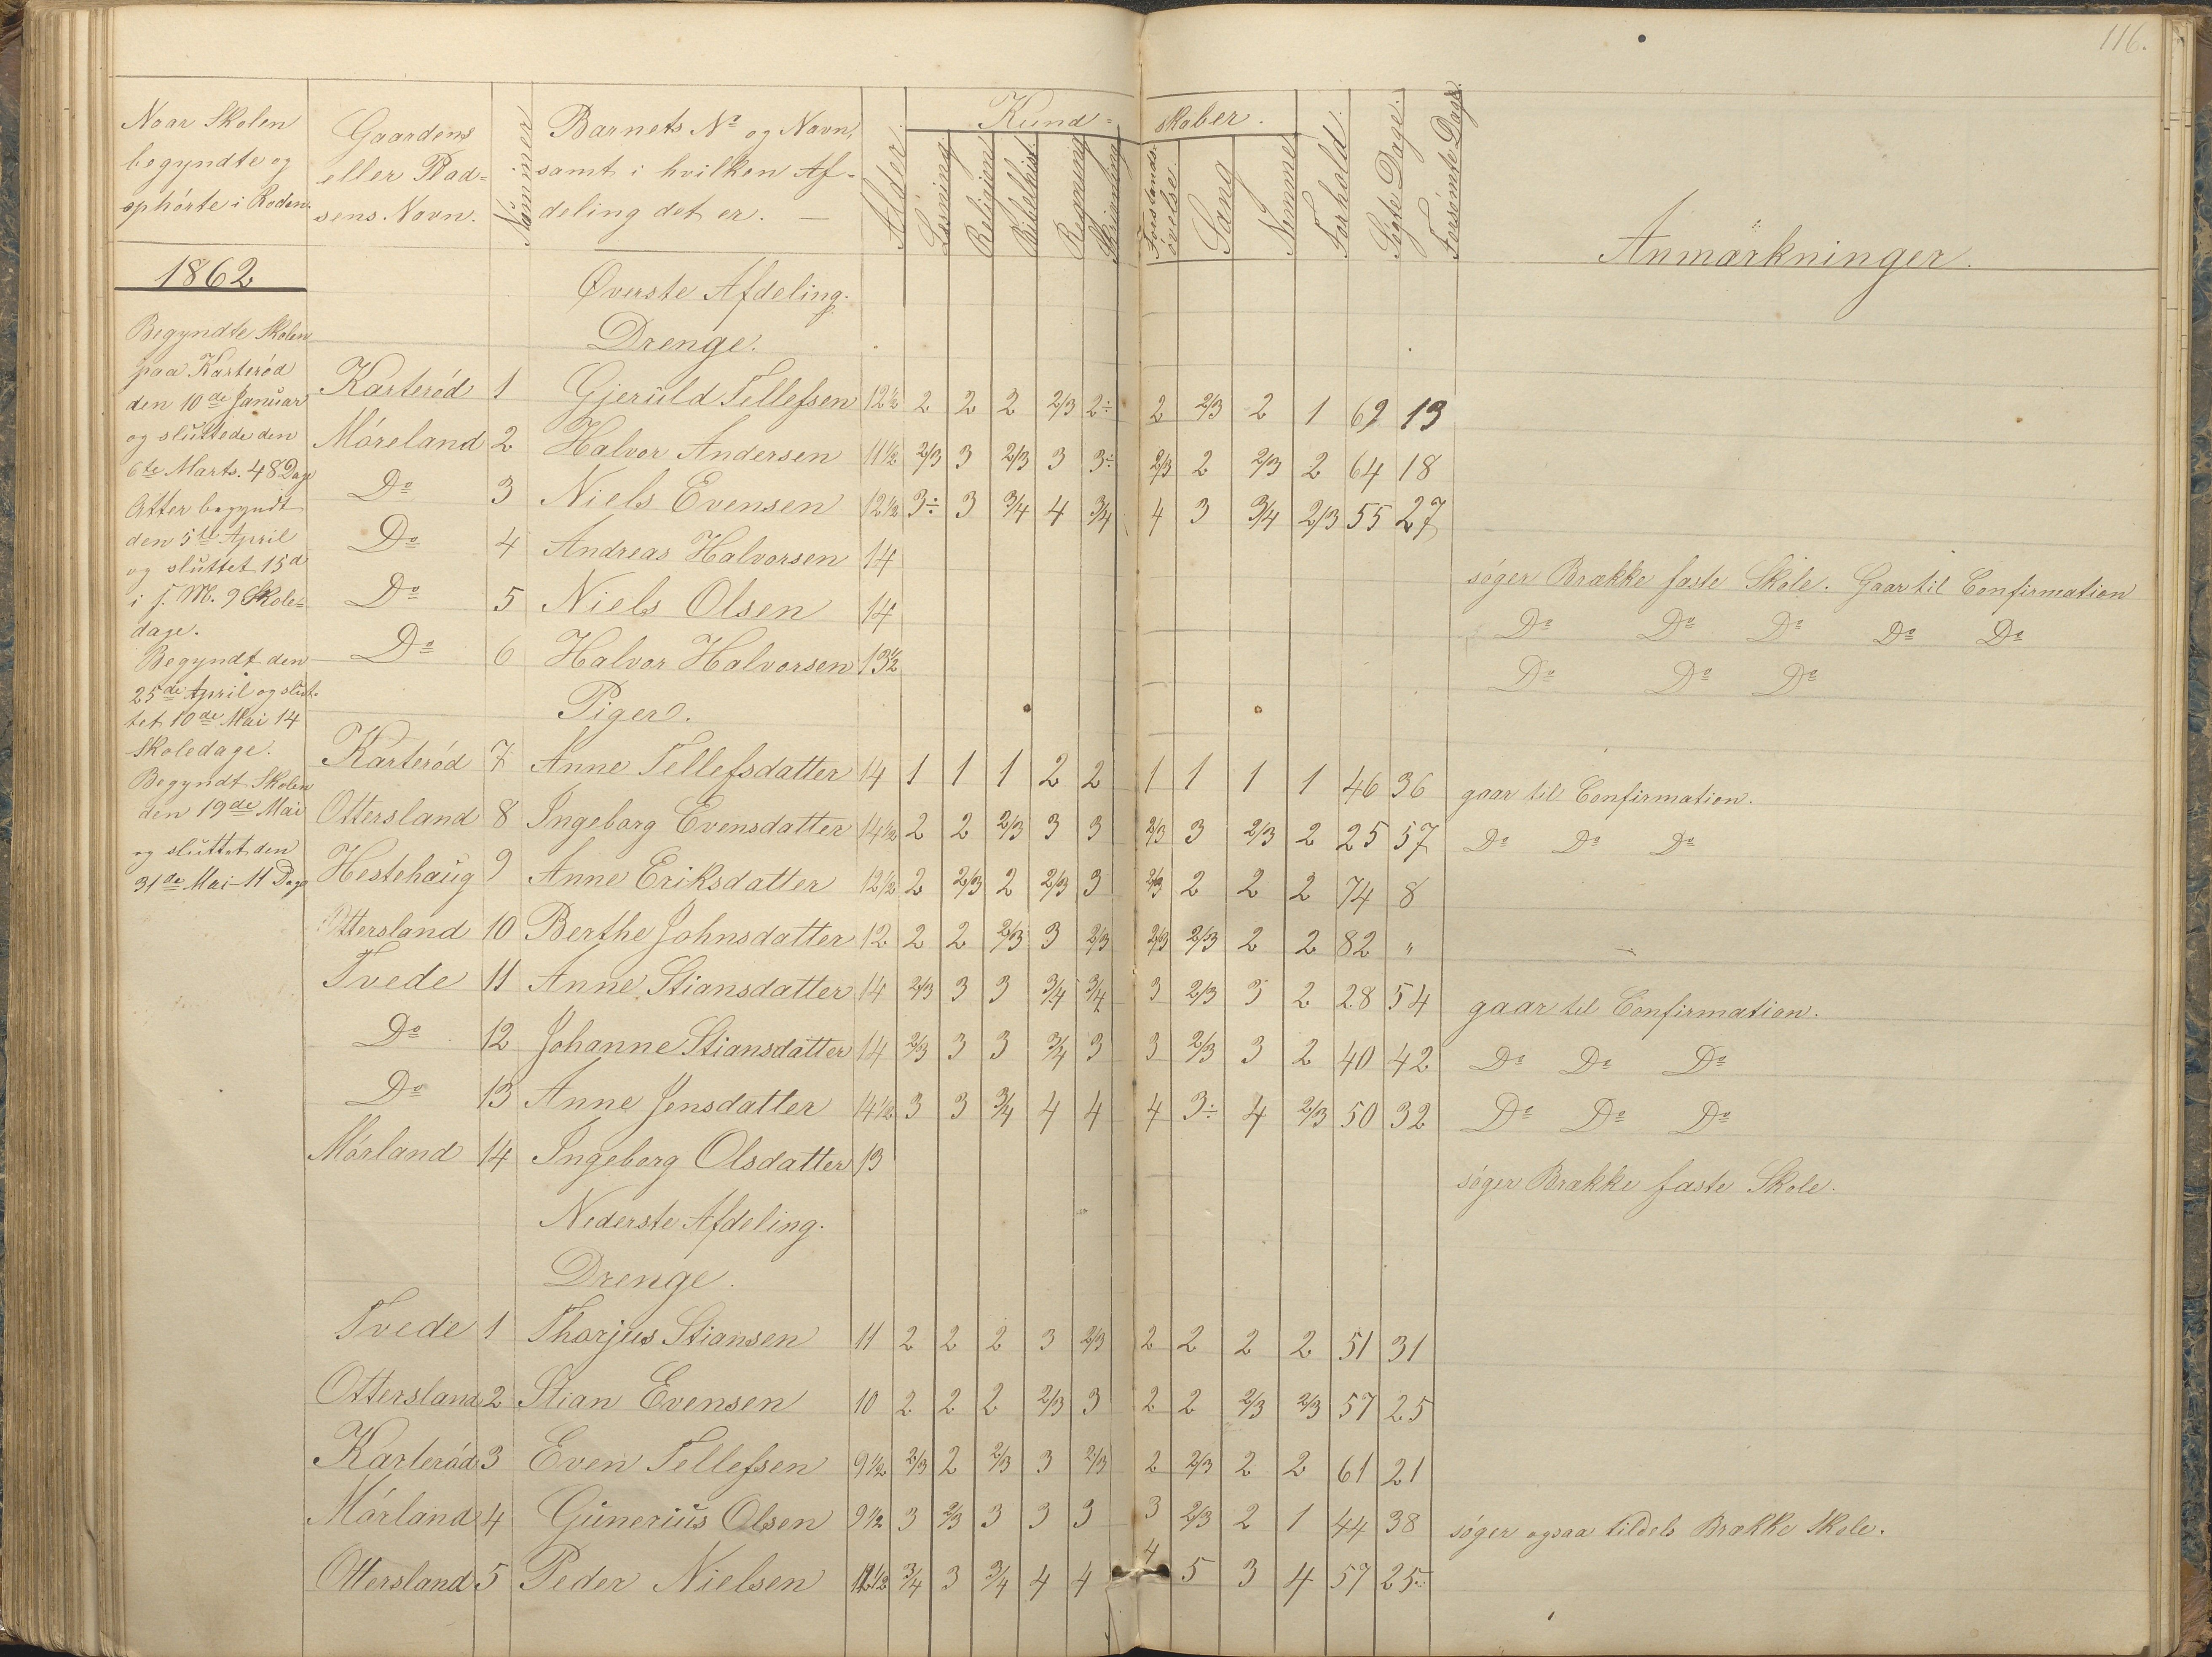 116.
Naar Skolen
begyndte og
ophørte i Roden.
Gaardens
eller Plad=
sens Navn.
Nummer
Barnets No og Navn,
samt i hvilken Af=
deling det er. —
Alder.
Kund= skaber.
Læsning
Religion
Bibelhist.
Regning
Skrivning
Forstands-
øvelse.
Sang
Nemme
Forhold.
Søgte Dage.
Forsømte Dage.
Anmærkninger.
1862
Øverste Afdeling.
Drenge.
Begyndte Skolen
paa Karterød
den 10de Januar
og sluttede den
6te Marts. 48 Dage
Atter begyndt
den 5te April
og sluttet 15d
i s. M. 9 Skole=
dage.
Begyndt den
25de April og slut-
tet 10de Mai 14
Skoledage.
Begyndt Skolen
den 19de Mai
og sluttet den
31de Mai - 11 Dage
Karterød 1 Gjeruld Tellefsen 12½ 2 2 2 2/3 2÷ 2 2/3 2 1 69 13
Møreland 2 Halvor Andersen 11½ 2/3 3 2/3 3 3÷ 2/3 2 2/3 2 64 18
Do 3 Niels Evensen 12½ 3÷ 3 3/4 4 3/4 4 3 3/4 2/3 55 27
Do 4 Andreas Halvorsen 14 søger Brække faste Skole. Gaar til Confirmation
Do 5 Niels Olsen 14 Do Do Do Do Do
Do 6 Halvor Halvorsen 13½ Do Do Do
Piger.
Karterød 7 Anne Tellefsdatter 14 1 1 1 2 2 1 1 1 1 46 36 gaar til Confirmation.
Ottersland 8 Ingeborg Evensdatter 14½ 2 2 2/3 3 3 2/3 3 2/3 2 25 57 Do Do Do
Hestehaug 9 Anne Eriksdatter 12½ 2 2/3 2 2/3 3 2/3 2 2 2 74 8
Ottersland 10 Berthe Johnsdatter 12 2 2 2/3 3 2/3 2/3 2/3 2 2 82 "
Tvede 11 Anne Stiansdatter 14 2/3 3 3 3/4 3/4 3 2/3 3 2 28 54 gaar til Confirmation.
Do 12 Johanne Stiansdatter 14 2/3 3 3 3/4 3 3 2/3 3 2 40 42 Do Do Do
Do 13 Anne Jensdatter 14½ 3 3 3/4 4 4 4 3÷ 4 2/3 50 32 Do Do Do
Mørland 14 Ingeborg Olsdatter 13 søger Brække faste Skole.
Nederste Afdeling.
Drenge.
Tvede 1 Thorjus Stiansen 11 2 2 2 3 2/3 2 2 2 2 51 31
Ottersland 2 Stian Evensen 10 2 2 2 2/3 3 2 2 2/3 2/3 57 25
Karterød 3 Even Tellefsen 9½ 2/3 2 2/3 3 2/3 2 2/3 2 2 61 21
Mørland 4 Gunerius Olsen 9½ 3 2/3 3 3 3 3 2/3 2 1 44 38 søger ogsaa tildels Brække Skole.
Ottersland 5 Peder Nielsen 12½ 3/4 3 3/4 4 4 4 5 3 4 57 25